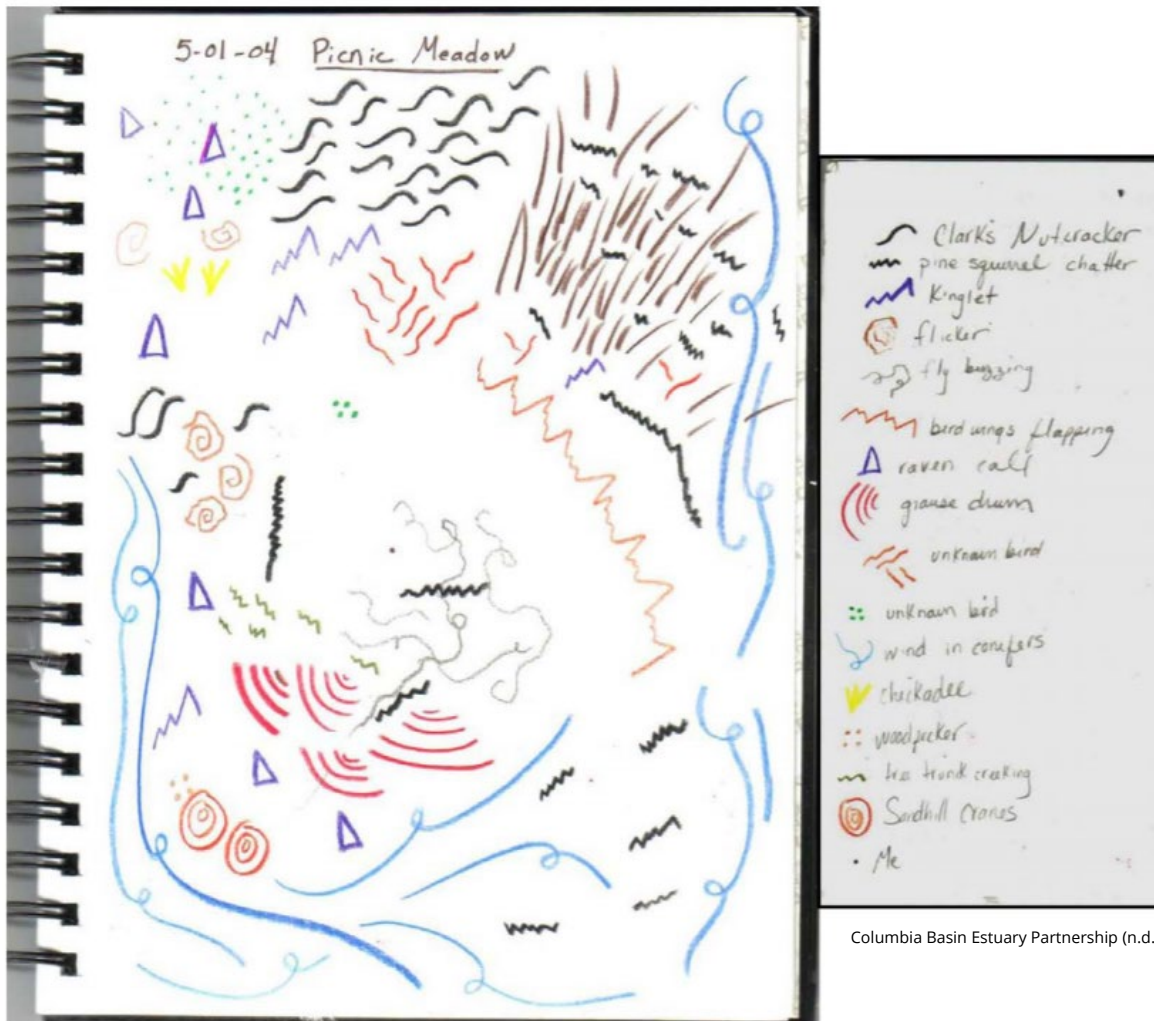 5-01-04 Picnic Meadow
Clark's Nutcracker
pine squirrel chatter
Kinglet
flicker
fly buzzing
bird wings flapping
raven call
grouse drum
unknown bird
unknown bird
wind in conifers
chickadee
woodpecker
tree trunk creeking
Sandhill Cranes
Me
Columbia Basin Estuary Partnership (n.d.